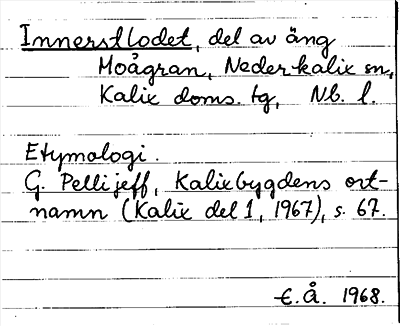 Innerstlodet, del av äng
Moågran, Nederkalix sn,
Kalix doms. tg, Nb. l.
Etymologi.
G. Pellijeff, Kalixbygdens ort-
namn (Kalix del 1, 1967), s. 67.
E.Å. 1968.